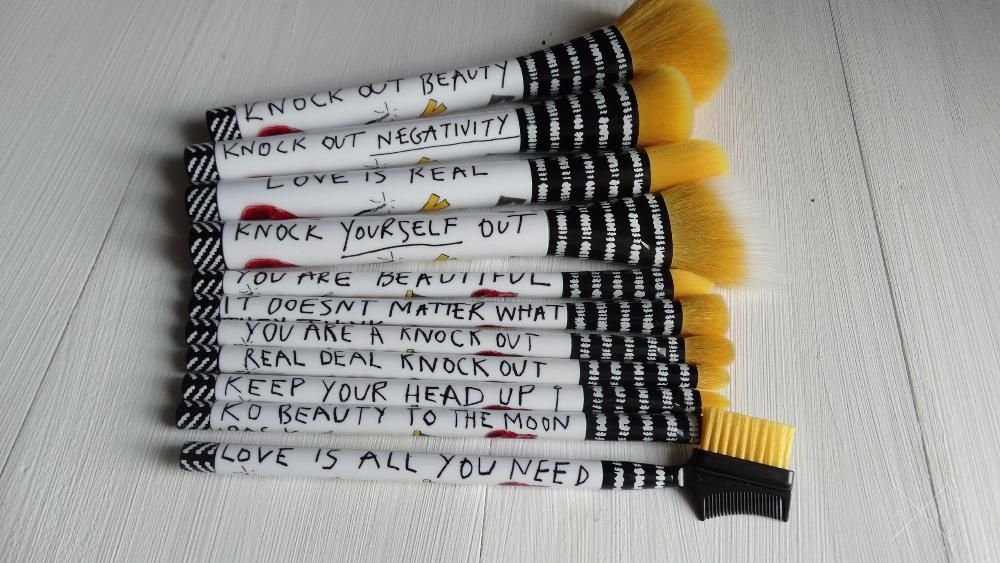 KNOCK OUT BEAUTY
KNOCK OUT NEGATIVITY
LOVE IS REAL
KNOCK YOURSELF OUT
YOU ARE BEAUTIFUL
IT DOESNT MATTER WHAT
YOU ARE A KNOCK OUT
REAL DEAL KNOCK OUT
KEEP YOUR HEAD UP
KO BEAUTY TO THE MOON
LOVE IS ALL YOU NEED